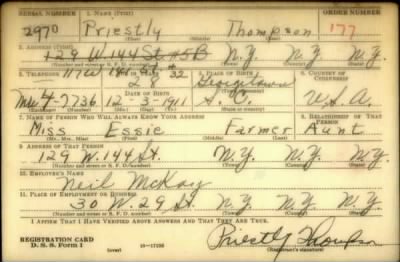 SERIAL NUMBER 1. NAME (Print) ORDER NUMBER
2970 Priestly Thompson 177
2. ADDRESS (Print)
129 W 144 St #5B N.Y. N.Y. N.Y.
(Number and street or R. F. D. number) (Town) (County) (State)
3. TELEPHONE 4. AGE IN YEARS 5. PLACE OF BIRTH 6. COUNTRY OF CITIZENSHIP
32 Georgetown
4-7736 12-3-1911 S. C. U.S.A.
DATE OF BIRTH
7. NAME OF PERSON WHO WILL ALWAYS KNOW YOUR ADDRESS 8. RELATIONSHIP OF THAT PERSON
Miss Essie Farmer Aunt
(Mr., Mrs., Miss) (First) (Middle) (Last)
9. ADDRESS OF THAT PERSON
129 W. 144 St. N.Y. N.Y. N.Y.
(Number and street or R. F. D. number) (Town) (County) (State)
10. EMPLOYER'S NAME
Neil McKay
11. PLACE OF EMPLOYMENT OR BUSINESS
30 W. 29 St N.Y. N.Y. N.Y.
(Number and street or R. F. D. number) (Town) (County) (State)
I AFFIRM THAT I HAVE VERIFIED ABOVE ANSWERS AND THAT THEY ARE TRUE.
REGISTRATION CARD
D. S. S. Form 1 (over) 16-17105 Priestly Thompson
(Registrant's signature)